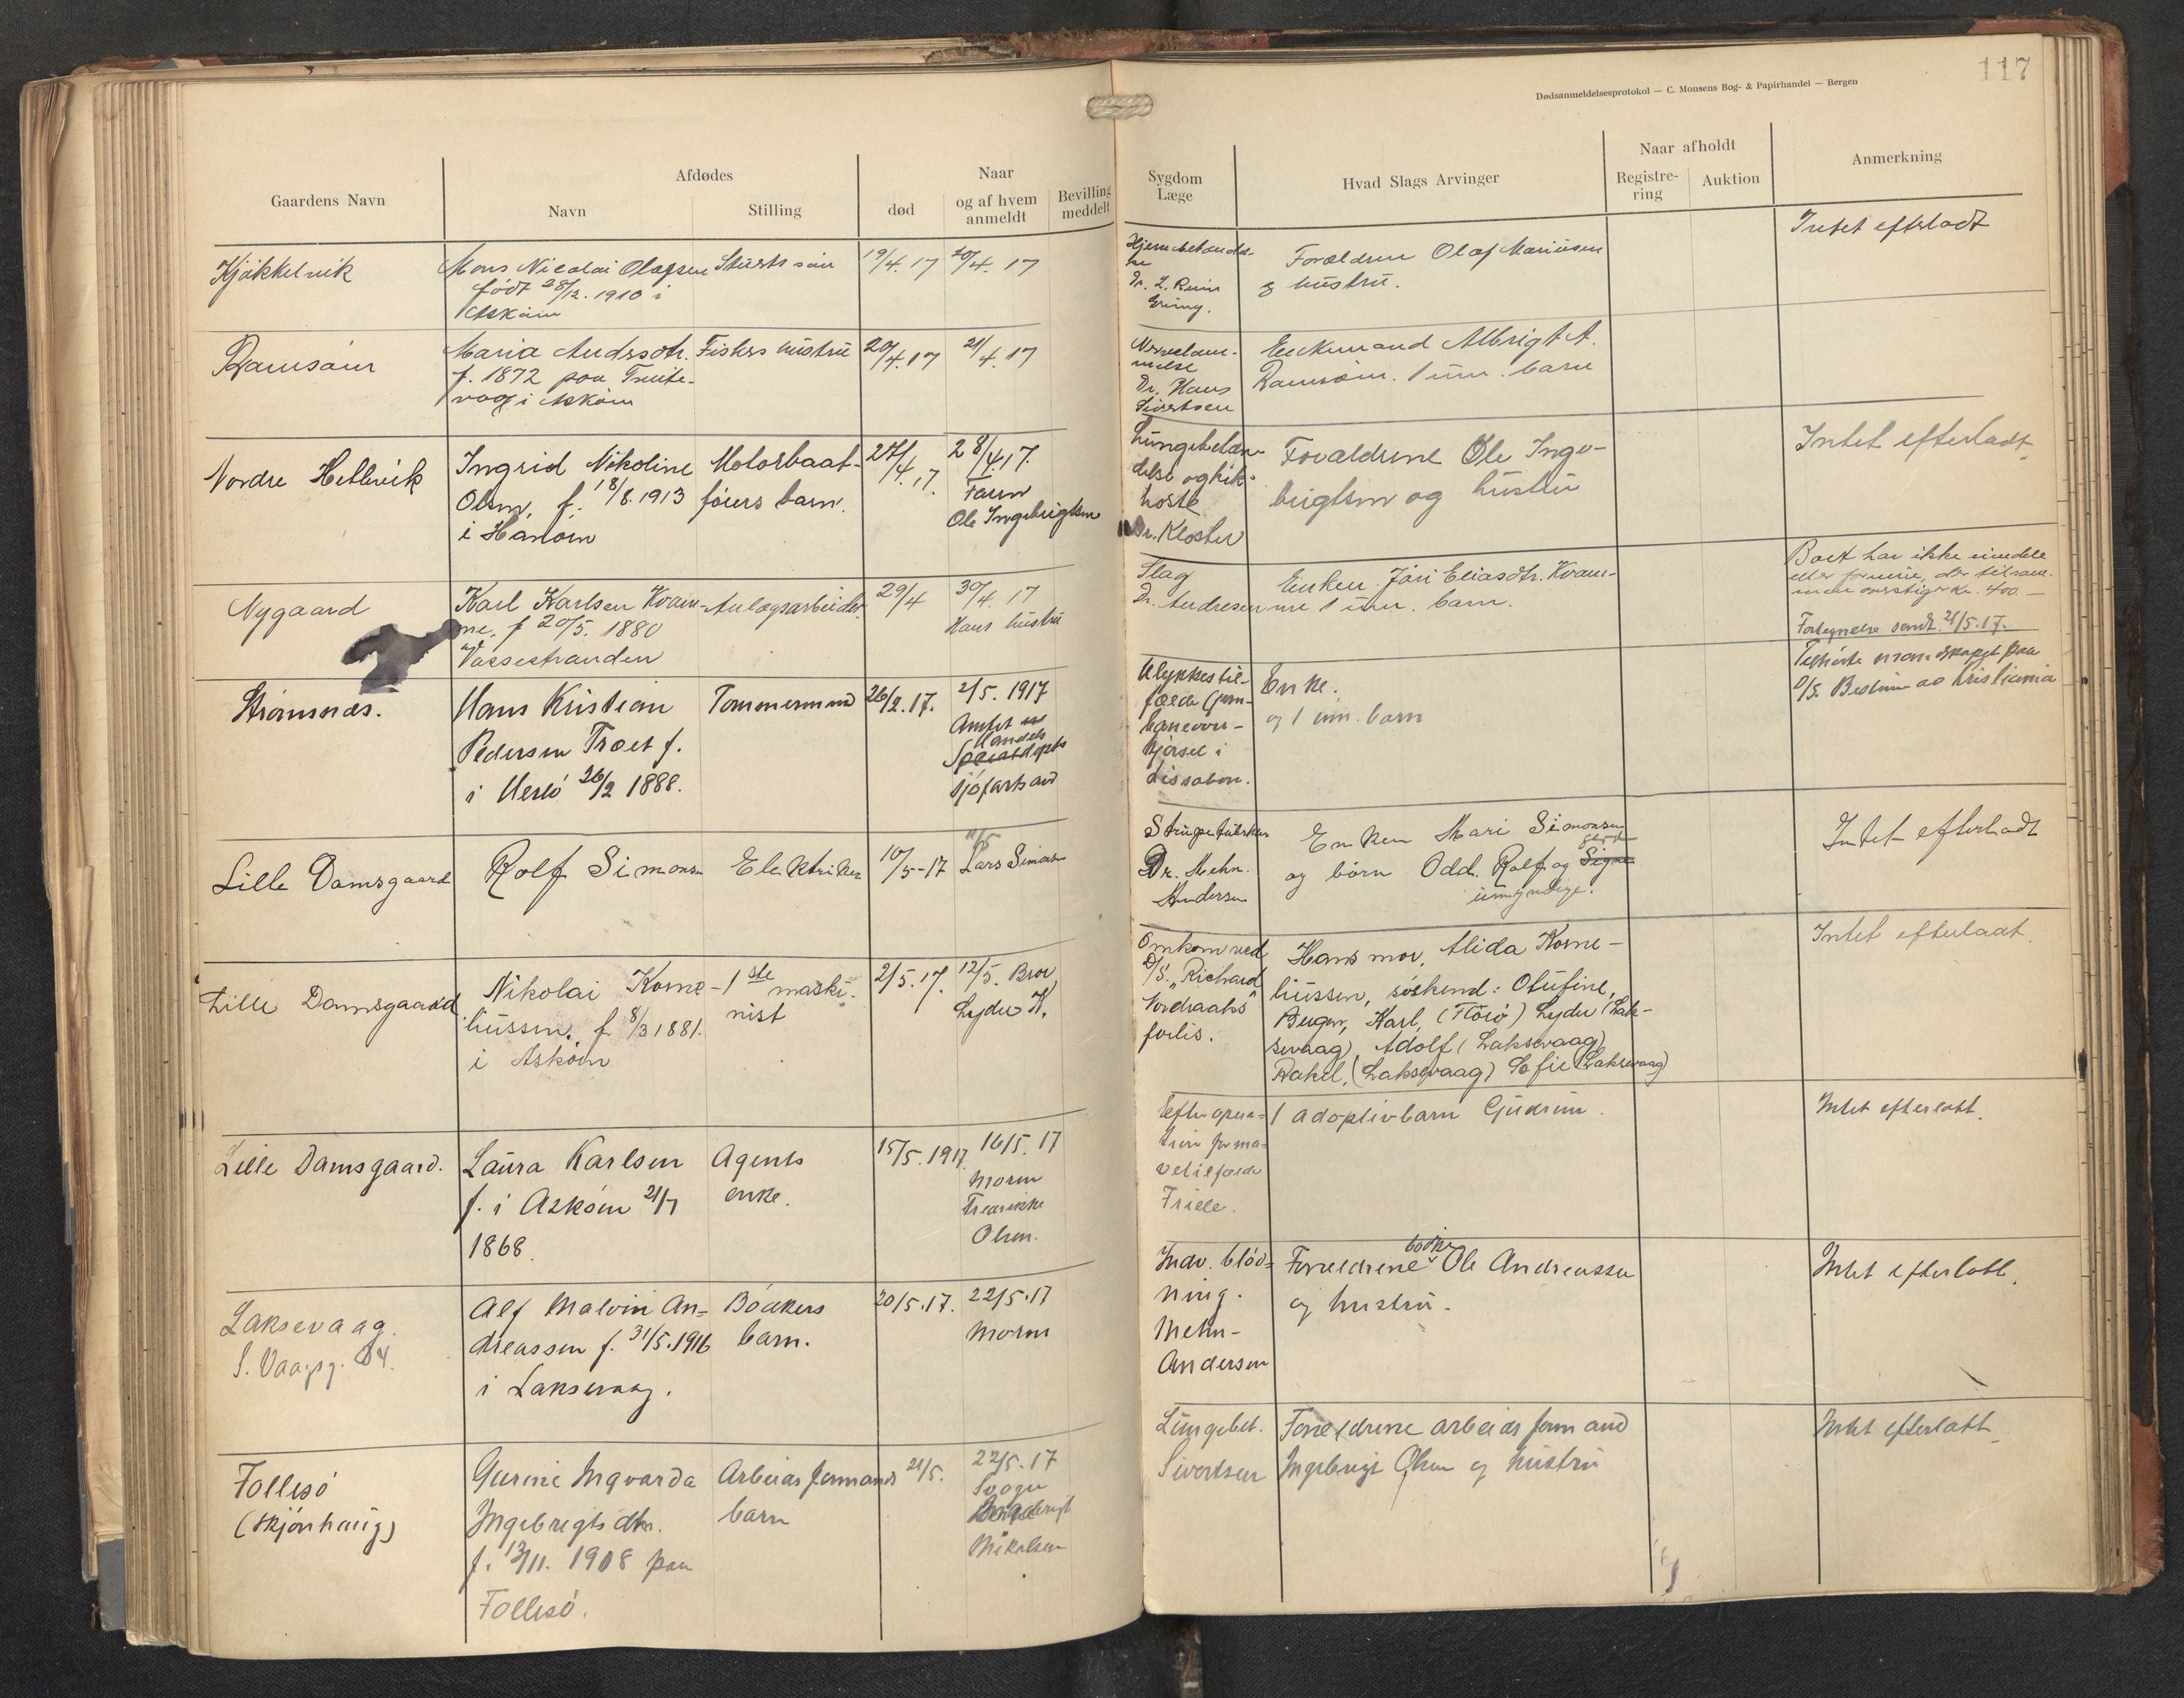 117
Dødsanmeldelsesprotokol — C. Monsens Bog- & Papirhandel — Bergen
Gaardens Navn
Afdødes
Navn
Stilling
død
Naar
og af hvem
anmeldt
Bevilling
meddelt
Sygdom
Læge
Hvad Slags Arvinger
Naar afholdt
Registre-
ring
Auktion
Anmerkning
Kjøkkelvik
Mons Nicolai Olafsen
født 28/12. 1910 i
Askøin
søn
19/4. 17
20/4. 17
Dr.
Forældrene Olaf Mariusen
og hustru.
Intet efterladt
Ramsøin
Maria Andrsdtr.
f. 1872 paa
i Askøin
Fiskers hustru
20/4. 17
21/4. 17
Dr. Hans
Sivertsen
Enkemand Albrigt A.
Ramsøin. 1 um. barn
Nordre Hetlevik
Ingrid Nikoline
Olsen, f. 18/8. 1913
i Hanøin
Motorbaat-
førers barn.
27/4. 17.
28/4. 17.
Faren
Ole Ingebrigtsen
Lungebetæn-
delse og kik-
hoste
Dr. Kloster
Forældrene Ole Inge-
brigtsen og hustru
Intet efterladt.
Nygaard
Karl Karlsen Kvam-
me, f 20/5. 1880
Vossestranden
Anlægsarbeider
29/4
30/4. 17
Hans hustru
Slag
Dr. Andresen
Enken Jøri Eliasdtr. Kvam-
me 1 um. barn.
Boet har ikke eiendele
eller formue, der tilsam-
men overstiger kr. 400 —
Fortegnelse sendt 21/5. 17.
Strømsnæs.
Hans Kristian
Pedersen Træet f.
i Herlø 26/2 1888.
Tømmermand
26/2. 17.
2/5. 1917
Amtet
Handels
sjøfarts
Ulykkestil-
fælde (jern-
baneover-
kjørsel i
Lissabon.
Enke.
og 1 um. barn
Tilhørte mandskapet paa
D/S. av Kristiania
Lille Damsgaard
Rolf Simonsen
Elektriker
10/5-17
11/5
Lars Simonsen
Strupetuberkul
Dr. Mehn.
Andersen
Enken Mari Simonsen
og børn Odd. Rolf og Signe
umyndige.
Intet efterladt
Lille Damsgaard
Nikolai Korne-
liussen, f. 8/3 1881.
i Askøin
1ste maski-
nist
2/5. 17.
12/5. Bror
Lyder K.
Omkom ved
D/S. „Richard
Nordraaks"
forlis.
Hans mor, Alida Korne-
liussen, søskend: Olufine,
Bergen, Karl, (Florø) Lyder (Lak-
sevaag), Adolf (Laksevaag)
Rakel, (Laksevaag) Efie (Laksevaag)
Intet efterladt.
Lille Damsgaard.
Laura Karlsen
f. i Askøin 21/7
1868.
Agents
enke.
15/5. 1917.
16/5. 17
Moren
Fredrikke
Olsen.
Efter opera-
tion for ma-
vetilfælde
Friele.
1 adoptivbarn Gudrun.
Intet efterlatt.
Laksevaag.
S. Vaagsg. 84.
Alf Malvin An-
dreassen f. 31/5. 1916
i Laksevaag.
Bødkers
barn.
20/5. 17.
22/5. 17
Moren
Indv. blød-
ning.
Mehn-
Andersen
Forældrene bødker Ole Andreassen
og hustru.
Intet efterlatt.
Follesø
(Skjønhaug)
Gurine Ingvarda
Ingebrigts dtr.
f. 13/11. 1908 paa
Follesø.
Arbeidsformands
barn
21/5.
22/5. 17
Svoger
Mikalsen
Lungebet.
Sivertsen
Forældrene arbeidsformand
Ingebrigt Olsen og hustru
Intet efterlatt.